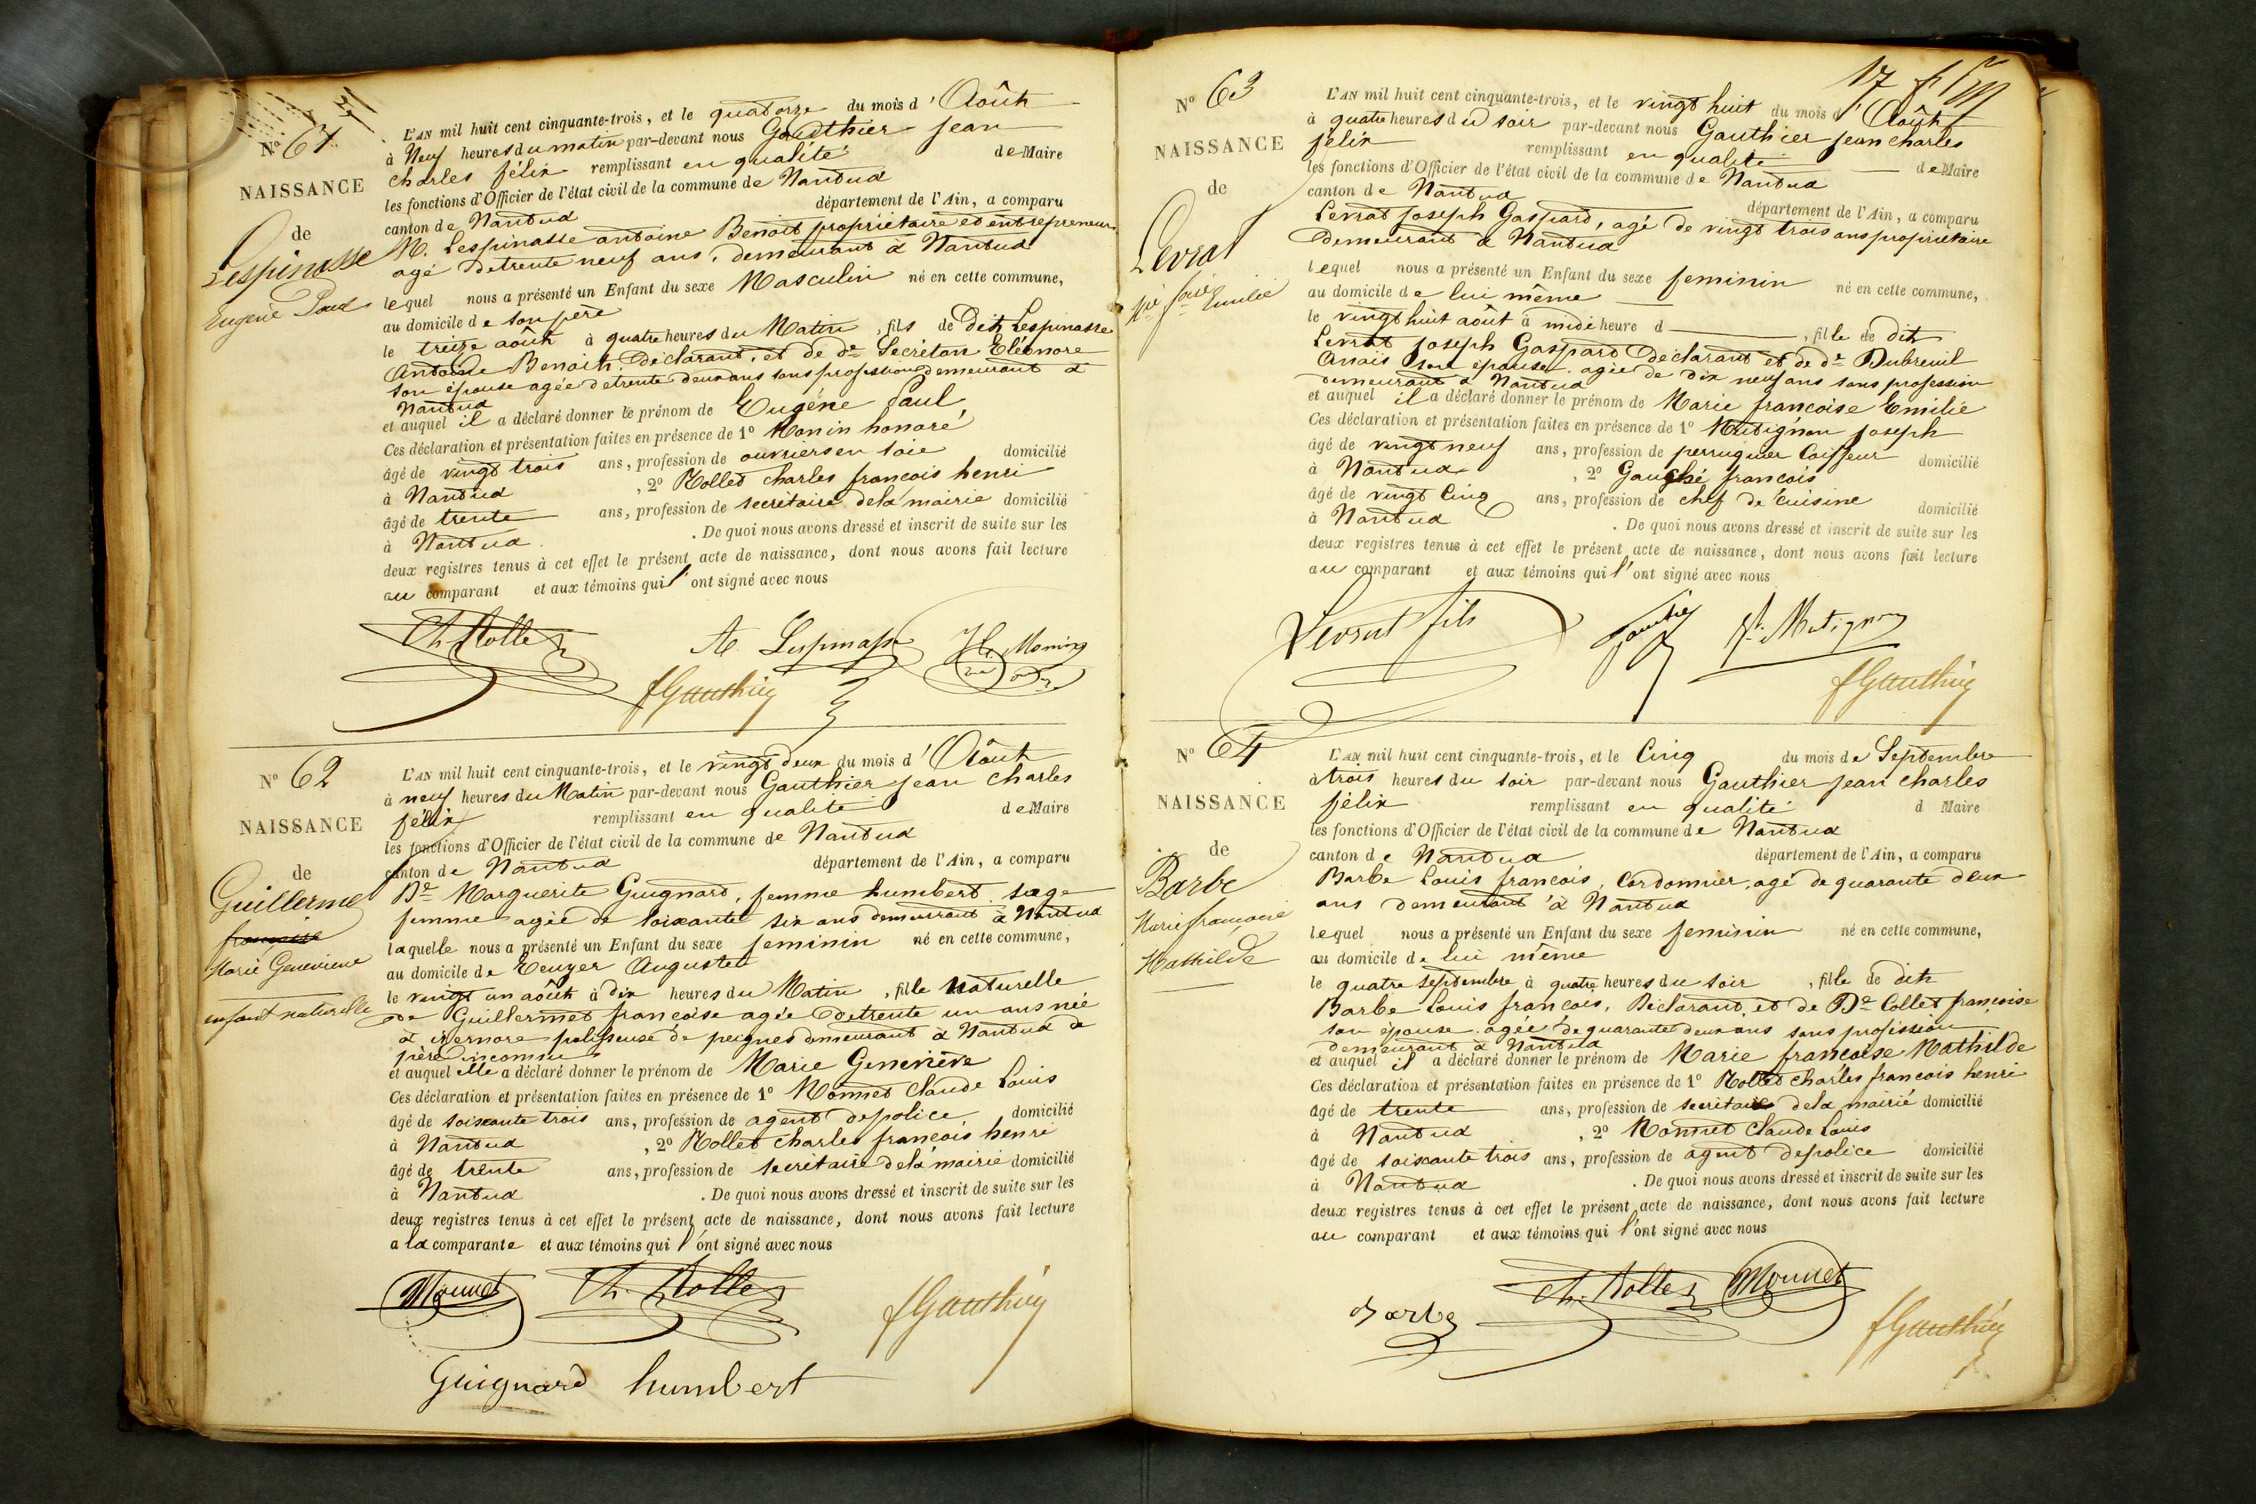 N° 61
NAISSANCE
de
Lespinasse
Eugène Paul
L'AN mil huit cent cinquante-trois, et le quatorze du mois d'Août
à Neuf heures du matin par-devant nous Gauthier Jean
charles félix remplissant en qualité de Maire
les fonctions d'Officier de l'état civil de la commune de Nantua
canton de Nantua département de l'Ain, a comparu
M. Lespinasse antoine Benoit propriétaire et entrepreneur
agé de trente neuf ans, demeurant à Nantua
lequel nous a présenté un Enfant du sexe Masculin né en cette commune,
au domicile de son père
le treize août à quatre heures du Matin, fils de dit Lespinasse
Antoine Benoit, Déclarant, et de de Secrétan Eléonore
son épouse agée de trente deux ans sans profession demeurant à
Nantua
et auquel il a déclaré donner le prénom de Eugéne Paul
Ces déclaration et présentation faites en présence de 1° Monin honoré
âgé de vingt trois ans, profession de ouvrier en soie domicilié
à Nantua, 2° Rollet charles françois henri
âgé de trente ans, profession de secrétaire de la mairie domicilié
à Nantua. De quoi nous avons dressé et inscrit de suite sur les
deux registres tenus à cet effet le présent acte de naissance, dont nous avons fait lecture
au comparant et aux témoins qui l'ont signé avec nous
Ch. Rollet A. Lespinasse H. Monin
fGauthier
N° 62
NAISSANCE
de
Guillermet
françoise
Marie Genevieve
enfant naturelle
L'AN mil huit cent cinquante-trois, et le vingt deux du mois d'Août
à neuf heures du Matin par-devant nous Gauthier Jean Charles
félix remplissant en qualité de Maire
les fonctions d'Officier de l'état civil de la commune de Nantua
canton de Nantua département de l'Ain, a comparu
De Marguerite Guignard, femme humbert sage
femme agée de soixante six ans demeurant à Nantua
laquelle nous a présenté un Enfant du sexe feminin né en cette commune,
au domicile de Auguste
le vingt un août à dix heures du Matin, fille naturelle
de Guillermet françoise agée de trente un ans née
à izernore polisseuse de peignes demeurant à Nantua de
père inconnu
et auquel elle a déclaré donner le prénom de Marie Geneviève
Ces déclaration et présentation faites en présence de 1° Monnet Claude Louis
âgé de soixante trois ans, profession de agent de police domicilié
à Nantua, 2° Rollet charles françois henri
âgé de trente ans, profession de secrétaire de la mairie domicilié
à Nantua. De quoi nous avons dressé et inscrit de suite sur les
deux registres tenus à cet effet le présent acte de naissance, dont nous avons fait lecture
a la comparante et aux témoins qui l'ont signé avec nous
Monnet Ch. Rollet fGauthier
Guignard humbert
17
N° 63
NAISSANCE
de
Levrat
Mie foise Emilie
L'AN mil huit cent cinquante-trois, et le vingt huit du mois d'Août
à quatre heures du soir par-devant nous Gauthier jean charles
félix remplissant en qualité de Maire
les fonctions d'Officier de l'état civil de la commune de Nantua
canton de Nantua département de l'Ain, a comparu
Levrat joseph Gaspard, agé de vingt trois ans propriétaire
demeurant à Nantua
lequel nous a présenté un Enfant du sexe feminin né en cette commune,
au domicile de lui même
le vingt huit août à midi heure d, fille de dit
Levrat joseph Gaspard Déclarant et de de Dubreuil
Anaïs son épouse agée de dix neuf ans sans profession
demeurant à Nantua
et auquel il a déclaré donner le prénom de Marie françoise Emilie
Ces déclaration et présentation faites en présence de 1° Mutignon joseph
âgé de vingt neuf ans, profession de perruquier Coiffeur domicilié
à Nantua, 2° Gauthé françois
âgé de vingt Cinq ans, profession de chef de cuisine domicilié
à Nantua. De quoi nous avons dressé et inscrit de suite sur les
deux registres tenus à cet effet le présent acte de naissance, dont nous avons fait lecture
au comparant et aux témoins qui l'ont signé avec nous
Levrat fils Mutignon
fGauthier
N° 64
NAISSANCE
de
Barbe
Marie françoise
Mathilde
L'AN mil huit cent cinquante-trois, et le Cinq du mois de Septembre
à trois heures du soir par-devant nous Gauthier jean charles
félix remplissant en qualité d Maire
les fonctions d'Officier de l'état civil de la commune de Nantua
canton de Nantua département de l'Ain, a comparu
Barbe Louis françois, Cordonnier, agé de quarante deux
ans demeurant à Nantua
lequel nous a présenté un Enfant du sexe feminin né en cette commune,
au domicile de lui même
le quatre septembre à quatre heures du soir, fille de dit
Barbe Louis françois, Déclarant, et de De Collet françoise
son épouse agée de quarante deux ans sans profission
demeurant à Nantua
et auquel il a déclaré donner le prénom de Marie françoise Mathilde
Ces déclaration et présentation faites en présence de 1° Rollet charles françois henri
âgé de trente ans, profession de secrétaire de la mairie domicilié
à Nantua, 2° Monnet Claude Louis
âgé de soixante trois ans, profession de agent de police domicilié
à Nantua. De quoi nous avons dressé et inscrit de suite sur les
deux registres tenus à cet effet le présent acte de naissance, dont nous avons fait lecture
au comparant et aux témoins qui l'ont signé avec nous
Barbe Ch. Rollet Monnet
fGauthier